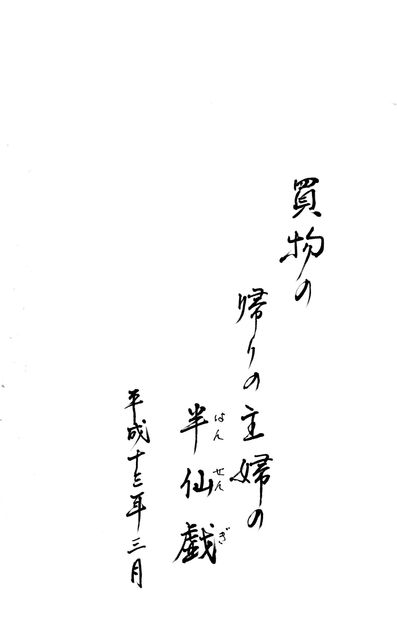 買物の
帰りの主婦の
半仙戯
はんせんぎ
平成十三年三月